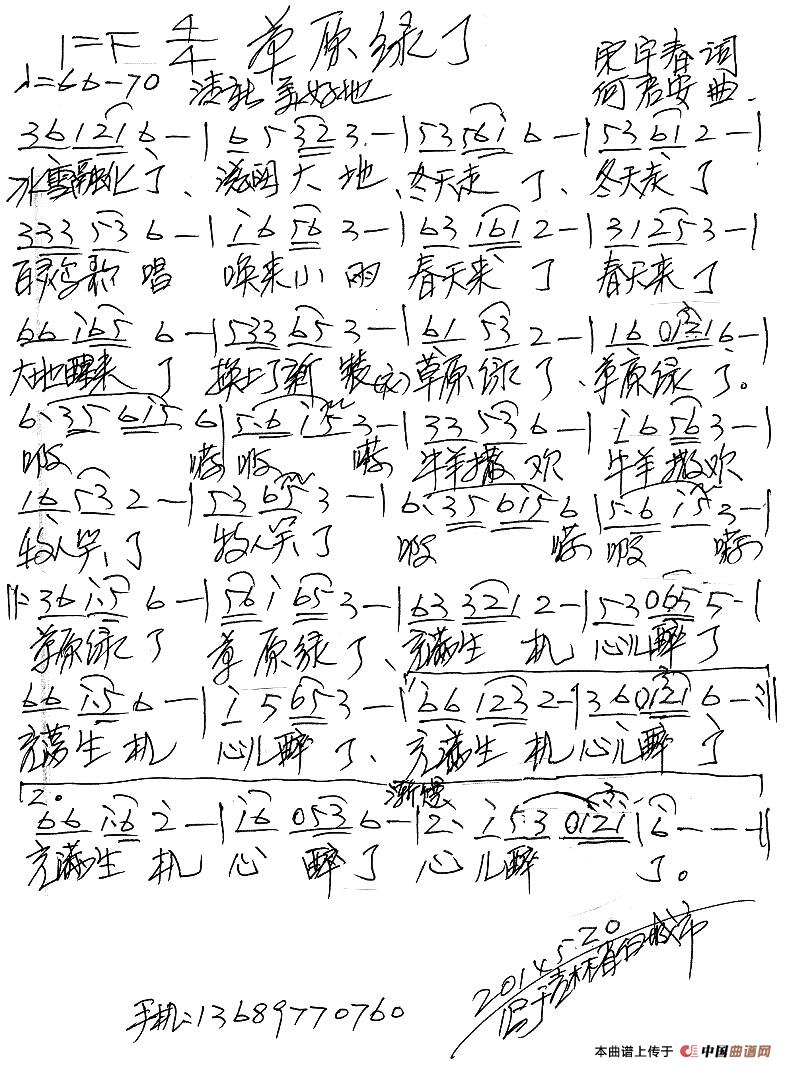 1=F 4/4 草原绿了
宋宇春 词
♩=66-70 清新 美好地
何君安 曲
36 1216- | 65 323.- | 53 5616- | 53 612- |
冰雪融化了、滋润大地、冬天走了、冬天走了
333 536- | i6 563- | 63 1612- | 31253- |
百灵鸟歌唱 唤来小雨 春天来了 春天来了
66 i656- | 533 653- | 61 532- | 16 01216- |
大地醒来了 换上了新装 草原绿了、草原绿了。
6·35 6i56 | 5·6 i53- | 33 536- | i6 563- |
呀 嗬 呀 嗬 牛羊撒欢 牛羊撒欢
16 532- | 53 653- | 6·35 6i56 | 5·6 i53- |
牧人笑了 牧人笑了 呀 嗬 呀 嗬
|: 36 i·56- | 56i 653- | 63 3212- | 53 0655- |
草原绿了 草原绿了、充满生机 心儿醉了
66 i·56- | i5 653- | 1. 66 1232- | 36 01216- :||
充满生机 心儿醉了、充满生机 心儿醉了
2. 渐慢
66 i·62- | i6 0536- | 2· i 5·3 0121 | 6--- ||
充满生机 心 醉了 心儿醉 了。
2014.5.20
手机:13689770760
本曲谱上传于 中国曲谱网